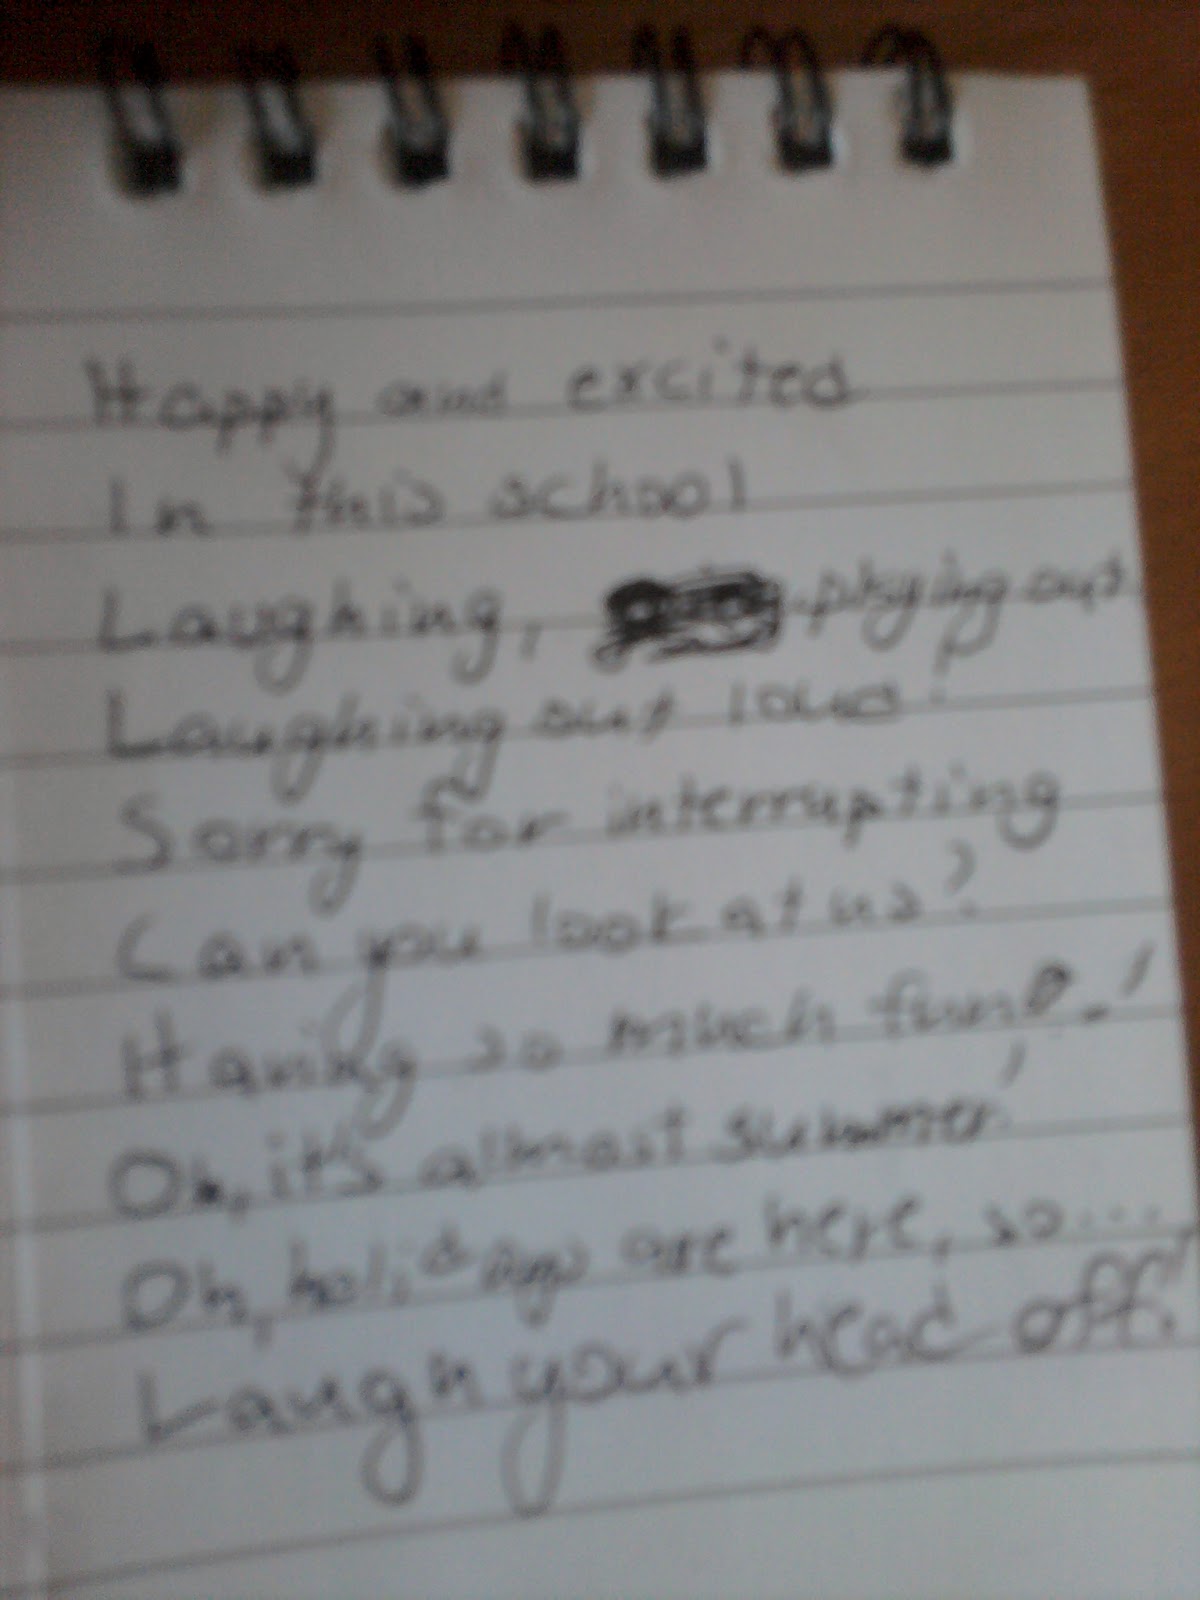 Happy and excited
In this school
Laughing, playing out
Laughing out loud!
Sorry for interrupting
Can you look at us?
Having so much fun!
Oh, it's almost summer!
Oh, holidays are here, so....
Laugh your head off!